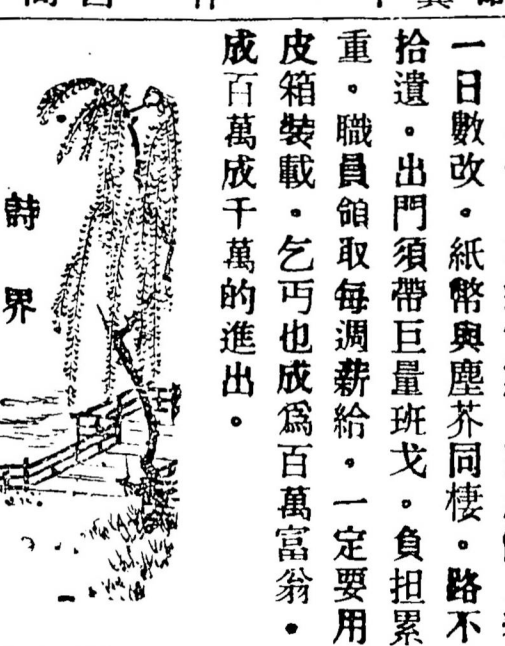 一日數改。紙幣與塵芥同棲。路不
拾遺。出門須帶巨量班戈。負担累
重。職員領取每週薪給。一定要用
皮箱裝載。乞丐也成為百萬富翁。
成百萬成千萬的進出。
詩界